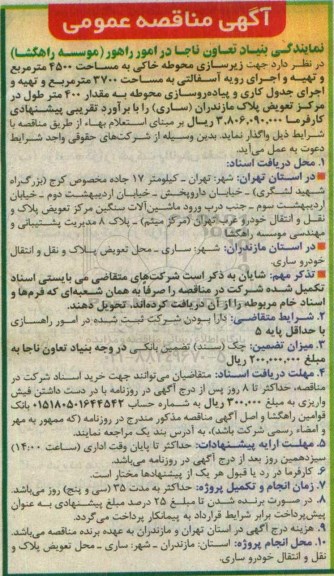 آگهی مناقصه عمومی
نمایندگی بنیاد تعاون ناجا در امور راهور (موسسه راهگشا)
در نظر دارد جهت زیرسازی محوطه خاکی به مساحت ۴۵۰۰ مترمربع
و تهیه و اجرای رویه آسفالتی به مساحت ۳۷۰۰ مترمربع و تهیه و
اجرای جدول کاری و پیاده‌روسازی محوطه به مقدار ۴۰۰ متر طول در
مرکز تعویض پلاک مازندران (ساری) را با برآورد تقریبی پیشنهادی
کارفرما ۳.۸۰۶.۰۹۰.۰۰۰ ریال بر مبنای استعلام بهاء از طریق مناقصه با
شرایط ذیل واگذار نماید. بدین وسیله از شرکت‌های حقوقی واجد شرایط
دعوت به عمل می‌آید.
۱. محل دریافت اسناد:
در استان تهران: شهر: تهران - کیلومتر ۱۷ جاده مخصوص کرج (بزرگراه
شهید لشگری) - خیابان داروپخش - خیابان اردیبهشت دوم - خیابان
اردیبهشت سوم - جنب درب ورود ماشین‌آلات سنگین مرکز تعویض پلاک و
نقل و انتقال خودرو غرب تهران (مرکز میثم) - پلاک ۸ مدیریت پشتیبانی و
مهندسی موسسه راهگشا
در استان مازندران: شهر: ساری - محل تعویض پلاک و نقل و انتقال
خودرو ساری.
تذکر مهم: شایان به ذکر است شرکت‌های متقاضی می بایستی اسناد
تکمیل شده شرکت در مناقصه را صرفاً به همان شعبه‌ای که فرم‌ها و
اسناد خام مربوطه را از آن دریافت کرده‌اند، تحویل دهند.
۲. شرایط متقاضی: دارا بودن شرکت ثبت شده در امور راهسازی
با حداقل پایه ۵
۳. میزان تضمین: چک (مستند) تضمین بانکی در وجه بنیاد تعاون ناجا به
مبلغ ۲۰۰.۰۰۰.۰۰۰ ریال
۴. مهلت دریافت اسناد: متقاضیان می‌توانند جهت خرید اسناد شرکت در
مناقصه، حداکثر تا ۸ روز پس از درج آگهی در روزنامه با در دست داشتن فیش
واریزی به مبلغ ۳۰۰.۰۰۰ ریال به شماره حساب ۰۱۵۱۸۰۵۰۱۶۴۴۵۴۲ بانک
قوامین راهگشا و اصل آگهی مناقصه مذکور مندرج در روزنامه (که ممهور به مهر
و امضاء رسمی شرکت باشد)، به آدرس بند یک مراجعه نمایند.
۵. مهلت ارایه پیشنهادات: حداکثر تا پایان وقت اداری (ساعت ۱۴:۰۰)
سیزدهمین روز بعد از درج آگهی در روزنامه می‌باشد.
۶. کارفرما در رد یا قبول هر یک از پیشنهادها مختار است.
۷. زمان انجام و تکمیل پروژه: حداکثر به مدت ۳۵ (سی و پنج) روز می‌باشد.
۸. در صورت برنده شدن تا مبلغ ۲۵ درصد مبلغ پیشنهادی به عنوان
پیش‌پرداخت برابر شرایط قرارداد به پیمانکار پرداخت می‌گردد.
۹. هزینه درج آگهی در استان تهران و مازندران به عهده برنده مناقصه می‌باشد.
۱۰. محل انجام پروژه: استان: مازندران - شهر: ساری - محل تعویض پلاک و
نقل و انتقال خودرو ساری.